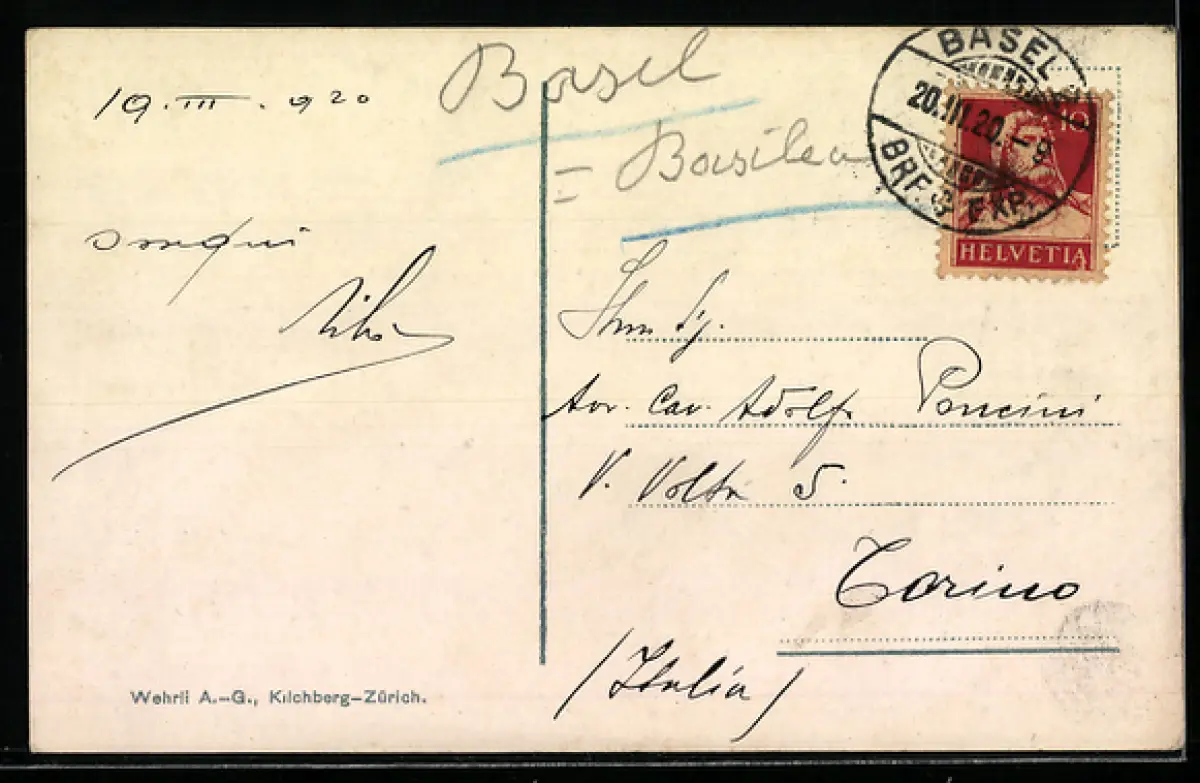 19. III. 920
Basel
= Basilea
BASEL
20.III.20.-9
BRF. EXP.
10
HELVETIA
Sig.
Avv. Cav. Adolfo Poncini
V. Volta 5.
Torino
(Italia)
Wehrli A.-G., Kilchberg-Zürich.